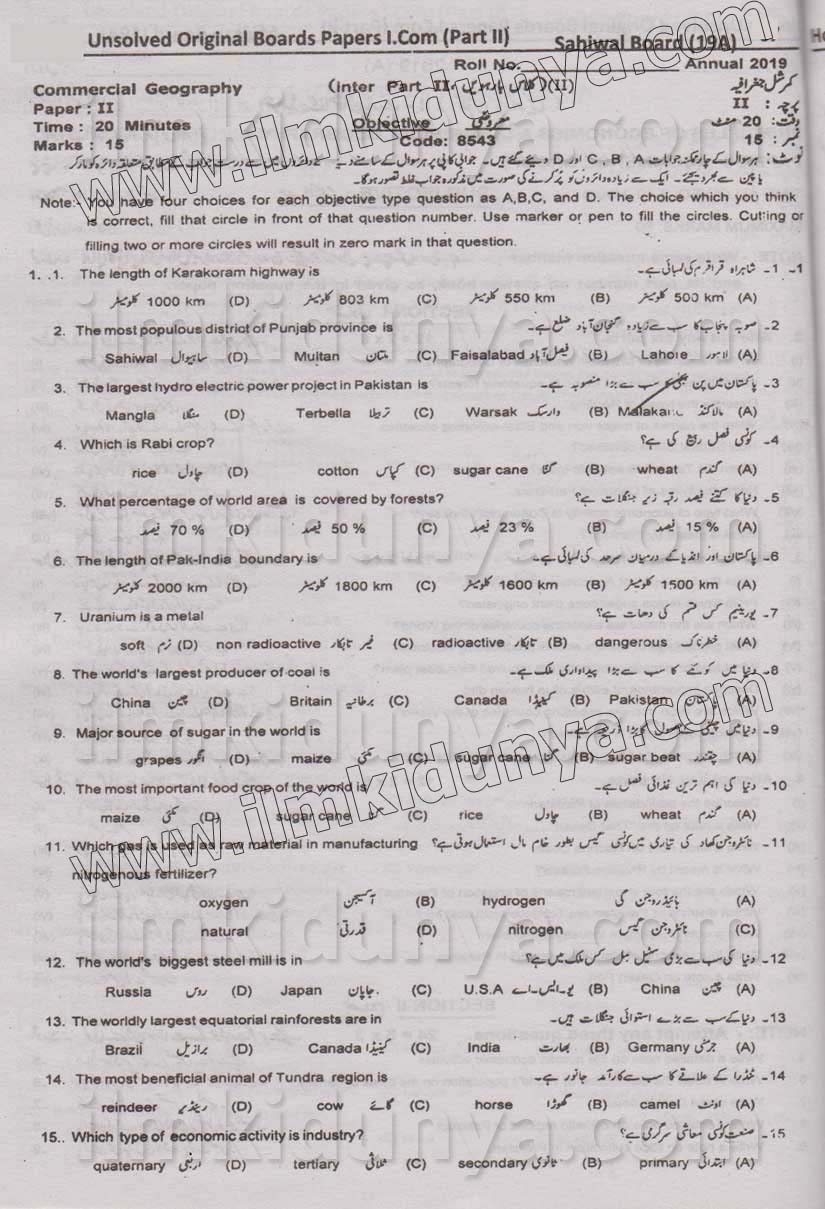 Unsolved Original Boards Papers I.Com (Part II) Sahiwal Board (19A)
Roll No. Annual 2019
Commercial Geography (Inter Part II، کلاس بارہویں)(II) کمرشل جغرافیہ
Paper : II پرچہ : II
Time : 20 Minutes Objective معروضی وقت : 20 منٹ
Marks : 15 Code: 8543 نمبر : 15
نوٹ: ہر سوال کے چار ممکنہ جوابات A ، B ، C اور D دیئے گئے ہیں۔ جوابی کاپی پر ہر سوال کے سامنے دیئے دائروں میں سے درست جواب کے مطابق متعلقہ دائرہ کو مارکر
یا پین سے بھر دیجئے۔ ایک سے زیادہ دائروں کو پُر کرنے کی صورت میں مذکورہ جواب غلط تصور ہوگا۔
Note:- You have four choices for each objective type question as A,B,C, and D. The choice which you think
is correct, fill that circle in front of that question number. Use marker or pen to fill the circles. Cutting or
filling two or more circles will result in zero mark in that question.
1. .1. The length of Karakoram highway is 1- 1- شاہراہ قراقرم کی لمبائی ہے۔
1000 km کلومیٹر (D) 803 km کلومیٹر (C) 550 km کلومیٹر (B) 500 km کلومیٹر (A)
2. The most populous district of Punjab province is 2- صوبہ پنجاب کا سب سے زیادہ گنجان آباد ضلع ہے۔
Sahiwal ساہیوال (D) Multan ملتان (C) Faisalabad فیصل آباد (B) Lahore لاہور (A)
3. The largest hydro electric power project in Pakistan is 3- پاکستان میں پن بجلی کا سب سے بڑا منصوبہ ہے۔
Mangla منگلا (D) Terbella تربیلا (C) Warsak وارسک (B) مالاکنڈ (A)
4. Which is Rabi crop? 4- کونسی فصل ربیع کی ہے؟
rice چاول (D) cotton کپاس (C) sugar cane گنا (B) wheat گندم (A)
5. What percentage of world area is covered by forests? 5- دنیا کا کتنے فیصد رقبہ زیر جنگلات ہے؟
70 % فیصد (D) 50 % فیصد (C) 23 % فیصد (B) 15 % فیصد (A)
6. The length of Pak-India boundary is 6- پاکستان اور انڈیا کے درمیان سرحد کی لمبائی ہے۔
2000 km کلومیٹر (D) 1800 km کلومیٹر (C) 1600 km کلومیٹر (B) 1500 km کلومیٹر (A)
7. Uranium is a metal 7- یورینیم کس قسم کی دھات ہے؟
soft نرم (D) non radioactive غیر تابکار (C) radioactive تابکار (B) dangerous خطرناک (A)
8. The world's largest producer of coal is 8- دنیا میں کوئلے کا سب سے بڑا پیداواری ملک ہے۔
China چین (D) Britain برطانیہ (C) Canada کینیڈا (B) Pakistan پاکستان (A)
9. Major source of sugar in the world is 9- دنیا میں چینی کے حصول کا بڑا ذریعہ ہے۔
grapes انگور (D) maize مکئی (C) sugar cane گنا (B) sugar beat چقندر (A)
10. The most important food crop of the world is 10- دنیا کی اہم ترین غذائی فصل ہے۔
maize مکئی (D) sugar cane گنا (C) rice چاول (B) wheat گندم (A)
11. Which gas is used as raw material in manufacturing 11- نائٹروجن کھاد کی تیاری میں کونسی گیس بطور خام مال استعمال ہوتی ہے؟
nitrogenous fertilizer?
oxygen آکسیجن (B) hydrogen ہائیڈروجن گی (A)
natural قدرتی (D) nitrogen نائٹروجن گیس (C)
12. The world's biggest steel mill is in 12- دنیا کی سب سے بڑی سٹیل مل کس ملک میں ہے؟
Russia روس (D) Japan جاپان (C) U.S.A یو۔ایس۔اے (B) China چین (A)
13. The worldly largest equatorial rainforests are in 13- دنیا کے سب سے بڑے استوائی جنگلات ہیں۔
Brazil برازیل (D) Canada کینیڈا (C) India بھارت (B) Germany جرمنی (A)
14. The most beneficial animal of Tundra region is 14- ٹنڈرا کے علاقے کا سب سے کارآمد جانور ہے۔
reindeer رینڈیر (D) cow گائے (C) horse گھوڑا (B) camel اونٹ (A)
15.. Which type of economic activity is industry? 15- صنعت کونسی معاشی سرگرمی ہے؟
quaternary اربعی (D) tertiary ثلاثی (C) secondary ثانوی (B) primary ابتدائی (A)
www.ilmkidunya.com